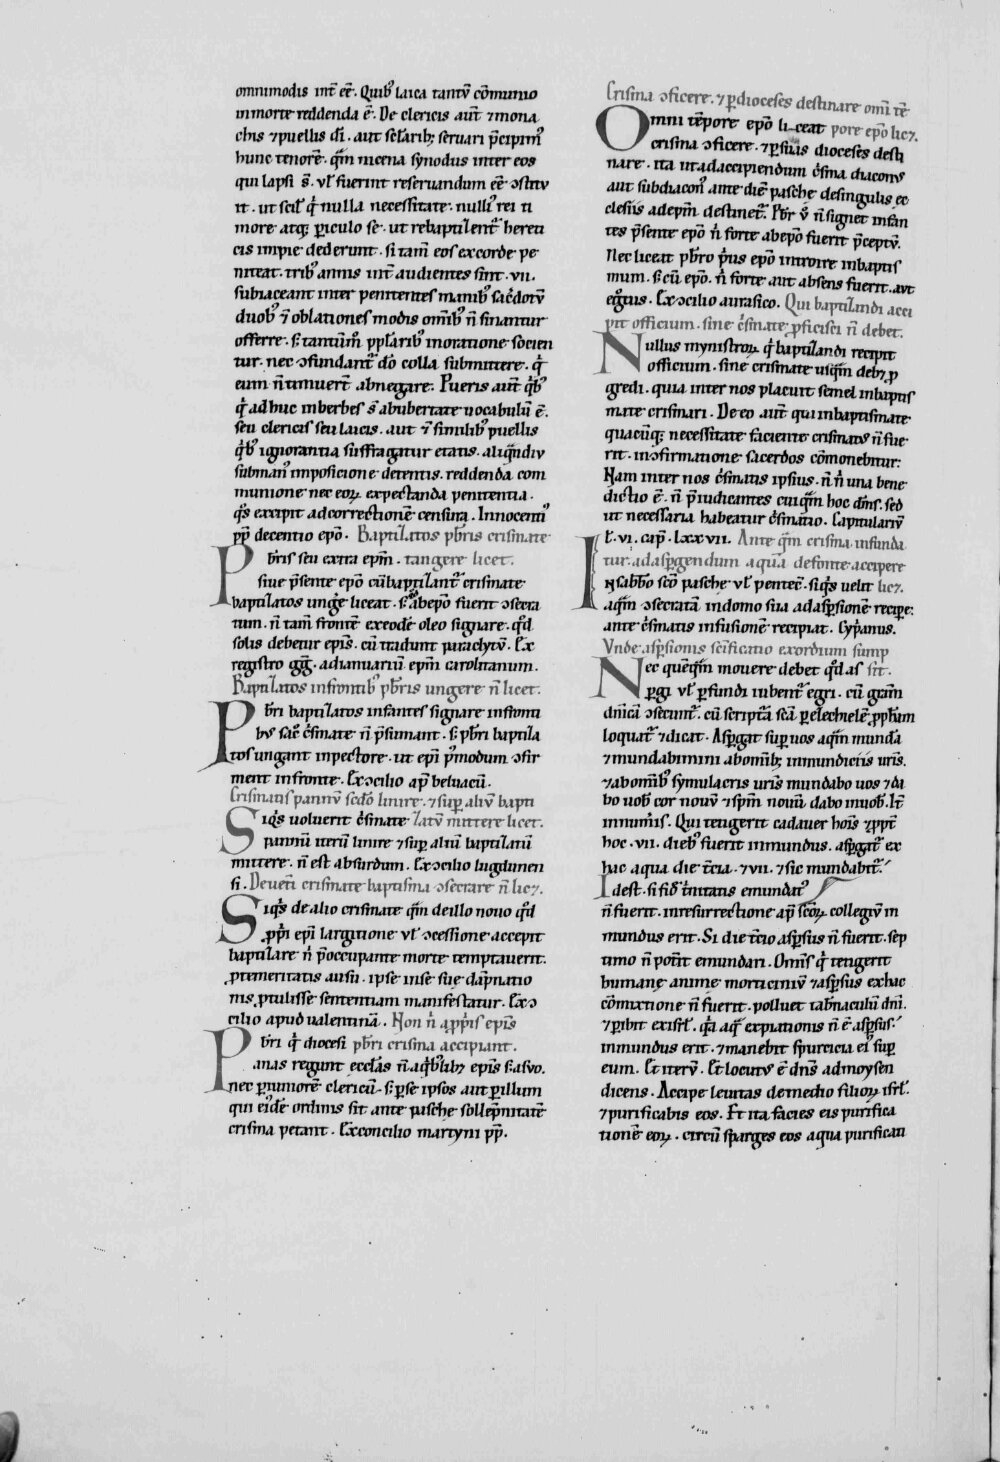 omnimodis int̄ eē. Quibꝰ laica tantū cōmunio
in morte reddenda ē. De clericis aut̄ ⁊ mona
chis ⁊ puellis dī. aut seclaribꝫ seruari p̄cipimꝰ
hunc tenorē. qm̄ nicena synodus inter eos
qui lapsi s̄. ut̄ fuerint reseruandum eē ɔstitu
it. ut scil q̇ nulla necessitate. nulliꝰ rei ti
more atqꝫ periculo se. ut rebaptizent̄ hereti
cis impie dederunt. si tam̄ eos ex corde pe
niteat. tribꝰ annis int̄ audientes sint. vii.
subiaceant inter penitentes manibꝰ sac̄dotū
duobꝰ ⁊ oblationes modis om̄ibꝰ n̄ sinantur
offerre. s; tantum̄ pplaribꝫ in oratione socien
tur. nec ɔfundant̄ dō colla submittere. q̇
eum n̄ timuert̄ abnegare. Pueris aut̄ q̇bꝰ
q̇ adhuc inberbes s̄ ab ubertate uocabulū ē.
seu clericis seu laicis. aut ⁊ similibꝰ puellis
q̇bꝰ ignorantia suffragatur etatis. aliqn̄diu
sub manꝰ imposicione detentis. reddenda com
munione nec eoꝝ expectanda penitentia.
q̇s excipit ad correctionē censura. Innocentiꝰ
pp̄ decentio epō. Baptizatos pb̄ris crismate
P bris seu extra epm̄. tangere licet.
siue p̄sente epō cū baptizant̄ crismate
baptizatos ung̃e liceat. s; ab epō fuerit ɔsecra
tum. n̄ tam̄ frontē ex eodē oleo signare. qd̄
solis debetur epis̄. cū tradunt paraclytū. Ex
registro gg̃. ad ianuariū epm̄ carolitanum.
Baptizatos in frontibꝰ pb̄ris ungere n̄ licet.
P bri baptizatos infantes signare in fronti
bꝰ sac̄ c̄smate n̄ p̄sumant. s; pb̄ri baptiza
tos ungant in pectore. ut epī pꝰmodum ɔfir
ment in fronte. Ex ɔcilio ap̄ beluacū.
Crismatis pannū scd̄o linire. ⁊ suꝑ aliū bapti
S iq̇s uoluerit c̄smate zatū mittere licet.
pannū iterū linire ⁊ suꝑ aliū baptizatū
mittere. n̄ est absurdum. Ex ɔcilio lugdunen
si. De ueti crismate baptisma ɔsecrare n̄ licꝫ.
S iq̇s de alio crismate qm̄ de illo nouo qd̄
ꝓpi epī largitione ut̄ ɔcessione accepit
baptizare n̄ p̄occupante morte temptauerit.
ꝓ temeritatis ausu. ipse in se sue dāpnatio
nis ꝓtulisse sententiam manifestatur. Ex ɔ
cilio apud ualentinā. Non n̄ a ꝓpis epis̄
P bri q̇ diocesi pb̄ri crisma accipiant.
anas regunt eccl̄as n̄ a q̇bꝰlibꝫ epis̄ s; a suo.
nec ꝑ iuniorē clericū. s; ꝑ se ipsos aut ꝑ illum
qui eidē ordinis sit ante pasche sollepnitatē
crisma petant. Ex concilio martyni pp̄.
Crisma ɔficere. ⁊ ꝑ dioceses destinare om̄i tē
O mni tēpore epō liceat pore epō licꝫ.
crisma ɔficere. ⁊ ꝑ suas dioceses desti
nare. ita ut ad accipiendum c̄sma diaconꝰ
aut subdiaconꝰ ante diē pasche de singulis ec
clesiis ad epm̄ destinet̄. Pb̄r ū n̄ signet infan
tes p̄sente epō n̄ forte ab epō fuerit p̄ceptū.
Nec liceat pb̄ro p̄us epō introire in baptis
mum. s; cū epō. n̄ forte aut absens fuerit. aut
eg̃tus. Ex ɔcilio aurasico. Qui baptizandi acci
pit officium. sine c̄smate ꝓficisci n̄ debet.
N ullus mynistroꝝ q̇ baptizandi recipit
officium. sine crismate usqm̄ debꝫ ꝓ
gredi. quia inter nos placuit semel in baptis
mate crismari. De eo aut̄ qui in baptismate
quacūqꝫ necessitate faciente crismatꝰ n̄ fue
rit. in ɔfirmatione sacerdos cōmonebitur.
Nam inter nos c̄smatis ipsius. n̄ n̄ una bene
dictio ē. n̄ p̄iudicantes cuiqm̄ hoc dm̄s. sed
ut necessaria habeatur c̄smatio. Capitulariū
l. vi. cap̄. lxxvii. Ante qm̄ crisma infunda
tur. ad aspgendum aquā de fonte accipere
I n sabbō scō pasche ut̄ pentec̄. siq̇s uelit licꝫ.
aqm̄ ɔsecratā in domo sua ad aspsionē recipe:
ante c̄smatis infusionē recipiat. Cyp̄anus.
Vnde aspsionis scificatio exordium sump
N ec queqm̄ mouere debet qd̄ as sit.
ꝑgi ut̄ ꝑfundi iubent̄ egri. cū gram̄
dn̄icā ɔsecunt̄. cū scriptā scā ꝑ ezechielē ꝓphetam
loquat̄ ⁊ dicat. Aspgat suꝑ uos aqm̄ mundā
⁊ mundabimini ab om̄ibꝫ inmundiciis ur̄is.
⁊ ab om̄ibꝰ symulacris ur̄is mundabo uos ⁊ da
bo uob̄ cor nouū ⁊ spm̄ nouū dabo in uob̄. It̄
in num̄is. Qui tengerit cadauer hois̄ ⁊ ꝓpt̄
hoc. vii. diebꝰ fuerit inmundus. aspgat̄ ex
hac aqua die t̄cia. ⁊ vii. ⁊ sic mundabit̄.
Id est. si fid t̄nitatis emundatꝰ
n̄ fuerit. in resurrectione ap̄ scoꝝ collegiū in
mundus erit. Si die t̄cio aspsus n̄ fuerit. sep
timo n̄ pot̄it emundari. Om̄s q̇ tengerit
humane anime morticiniū ⁊ aspsus ex hac
cōmixtione n̄ fuerit. polluet tab̄naculū dn̄i.
⁊ ꝑibit ex isrl. q̇a aq̇ expiationis n̄ ē aspsus.
inmundus erit. ⁊ manebit spurcicia eiꝰ suꝑ
eum. Et iterū. Et locutꝰ ē dn̄s ad moysen
dicens. Accipe leuitas de medio filioꝝ isrl.
⁊ purificabis eos. Et ita facies eis purifica
tionē eoꝝ. circū sparges eos aqua purificati